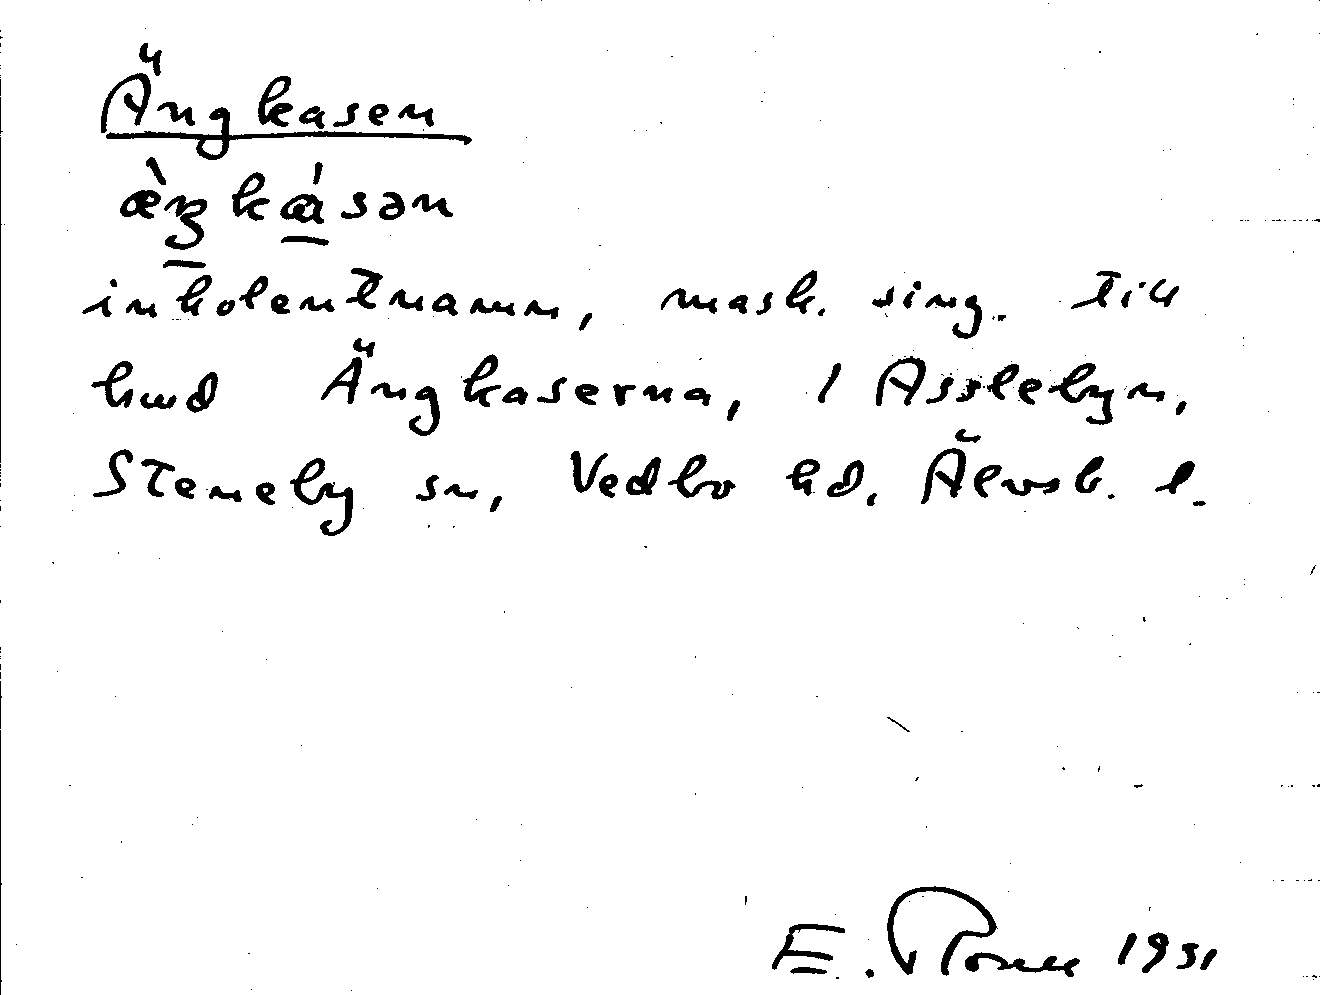 Ängkasen
æ̀ŋkásən
inkolentnamn, mask. sing. till
hmd Ängkaserna, 1 Asslebyn,
Steneby sn, Vedbo hd, Älvsb. l.
E. 1931